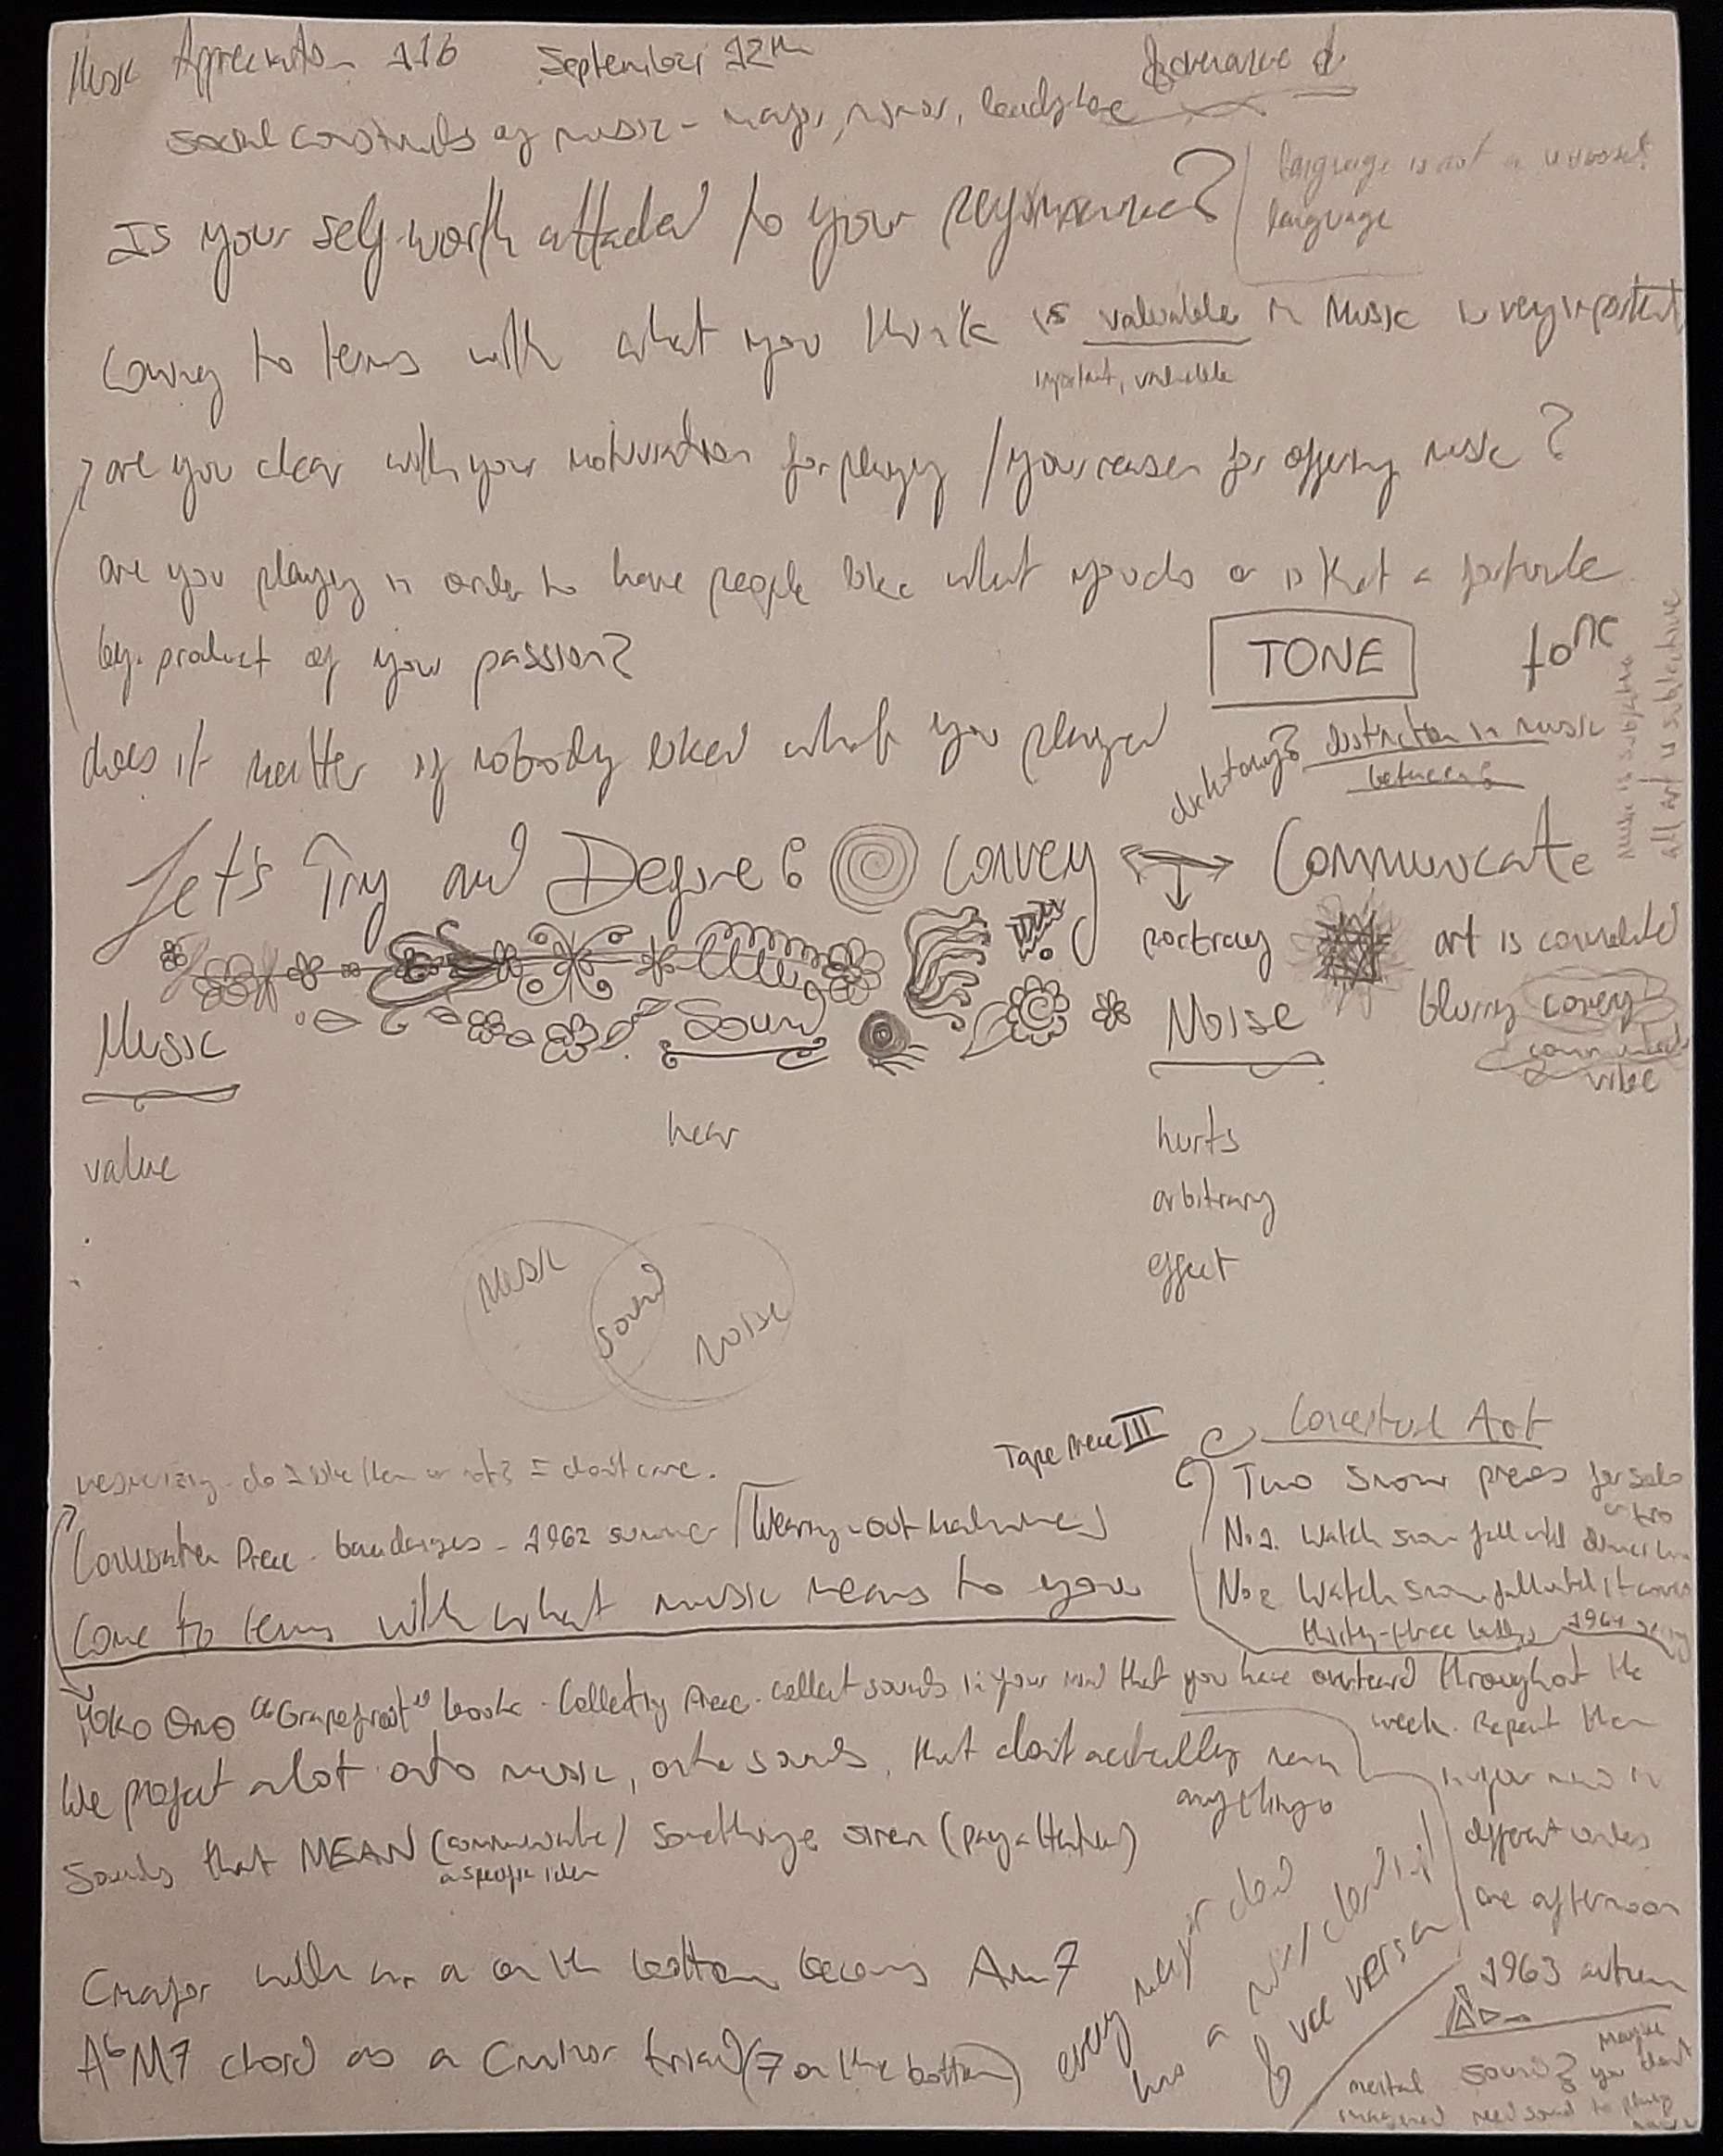 Music Appreciation 116 September 12th
social constructs of music - major, minor, leading tone
language is not a universal
language
Is your self-worth attached to your performance?
Coming to terms with what you think is valuable in Music is very important
important, valuable
are you clear with your motivation for playing / your reason for offering music?
are you playing in order to have people like what you do or is that a fortunate
by-product of your passion?
TONE
tone
music is subjective
all art is subjective
does it matter if nobody liked what you played
dichotomy? distinction in music
between:
Let's Try and Define: Convey Communicate
portray
art is convoluted
blurry convey
communicate
vibe
Music
Sound
Noise
value
hear
hurts
arbitrary
effect
Music
Sound
Noise
Tape Piece III
Conceptual Art
mesmerizing - do I like them or not? = don't care.
Two Snow pieces for solo
or trio
Conversation Piece - bandages - 1962 summer
No 1. Watch snow fall until
No 2 Watch snow fall until it covers
thirty-three 1964
Come to terms with what music means to you
Yoko Ono "Grapefruit" book - Collecting Piece - collect sounds in your mind that you have overheard throughout the
week. Repeat them
in your mind in
different orders
one afternoon
1963 autumn
We project a lot onto music, onto sounds, that don't actually mean
anything
Sounds that MEAN (communicate) something: siren (pay attention)
a specific idea
C major with an a on the bottom becomes Am7
AbM7 chord as a C minor triad (7 on the bottom)
every major chord
has a minor chord in it
& vice versa
mental sound?
imagined
Maybe
you don't
need sound to play
music